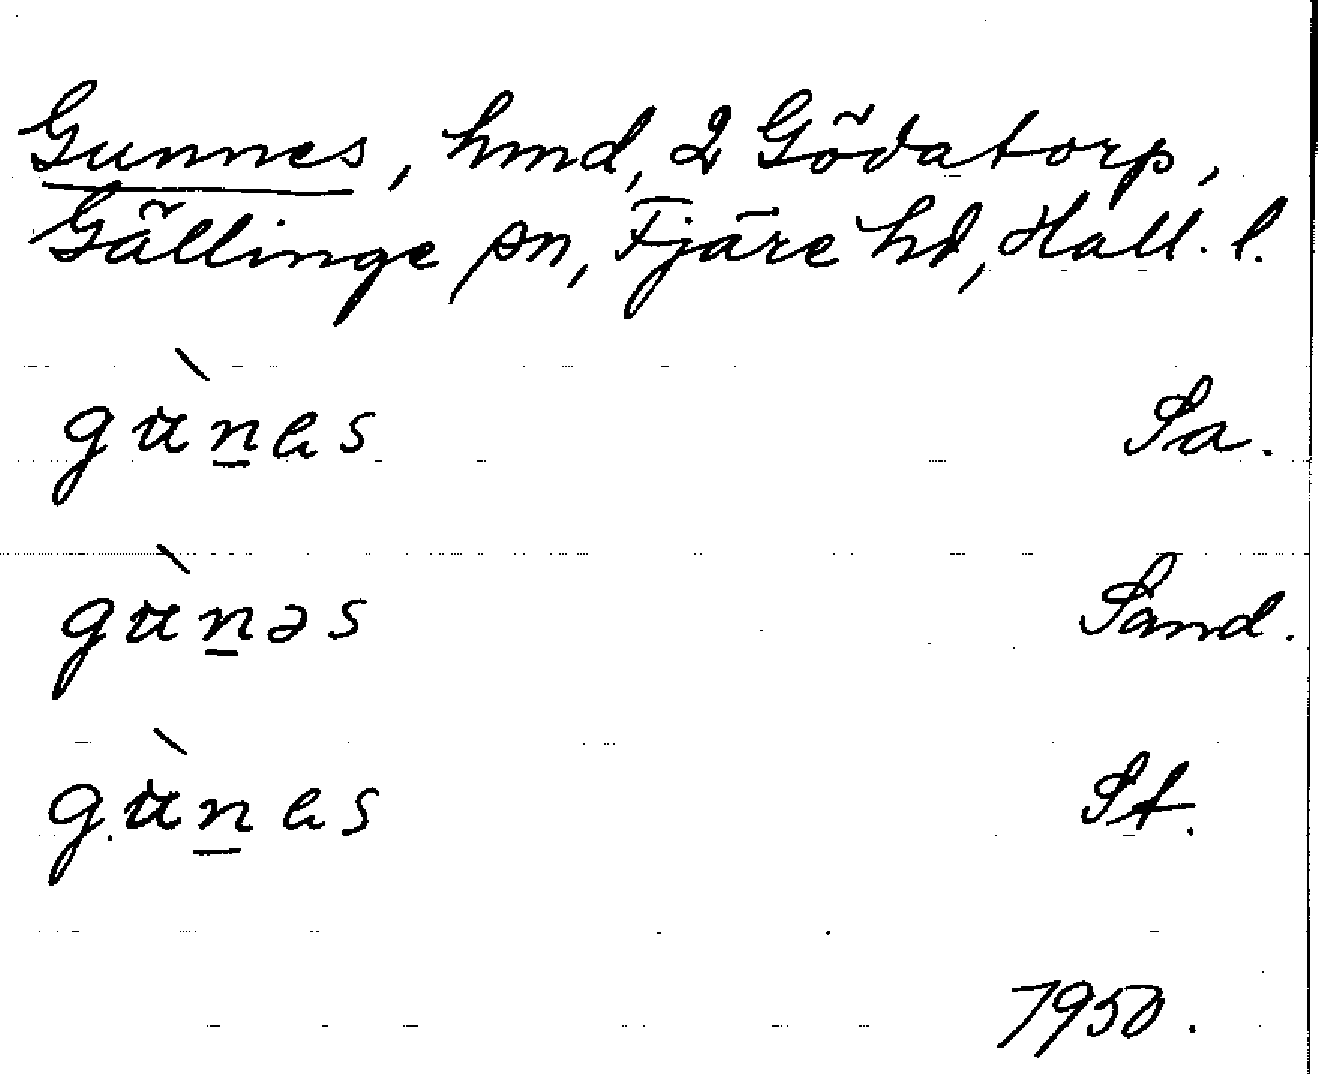 Gunnes, hmd, 2 Gödatorp,
Gällinge sn, Fjäre hd, Hall. l.
gùn̲es Sa.
gùn̲əs Sand.
gùn̲es St.
1950.